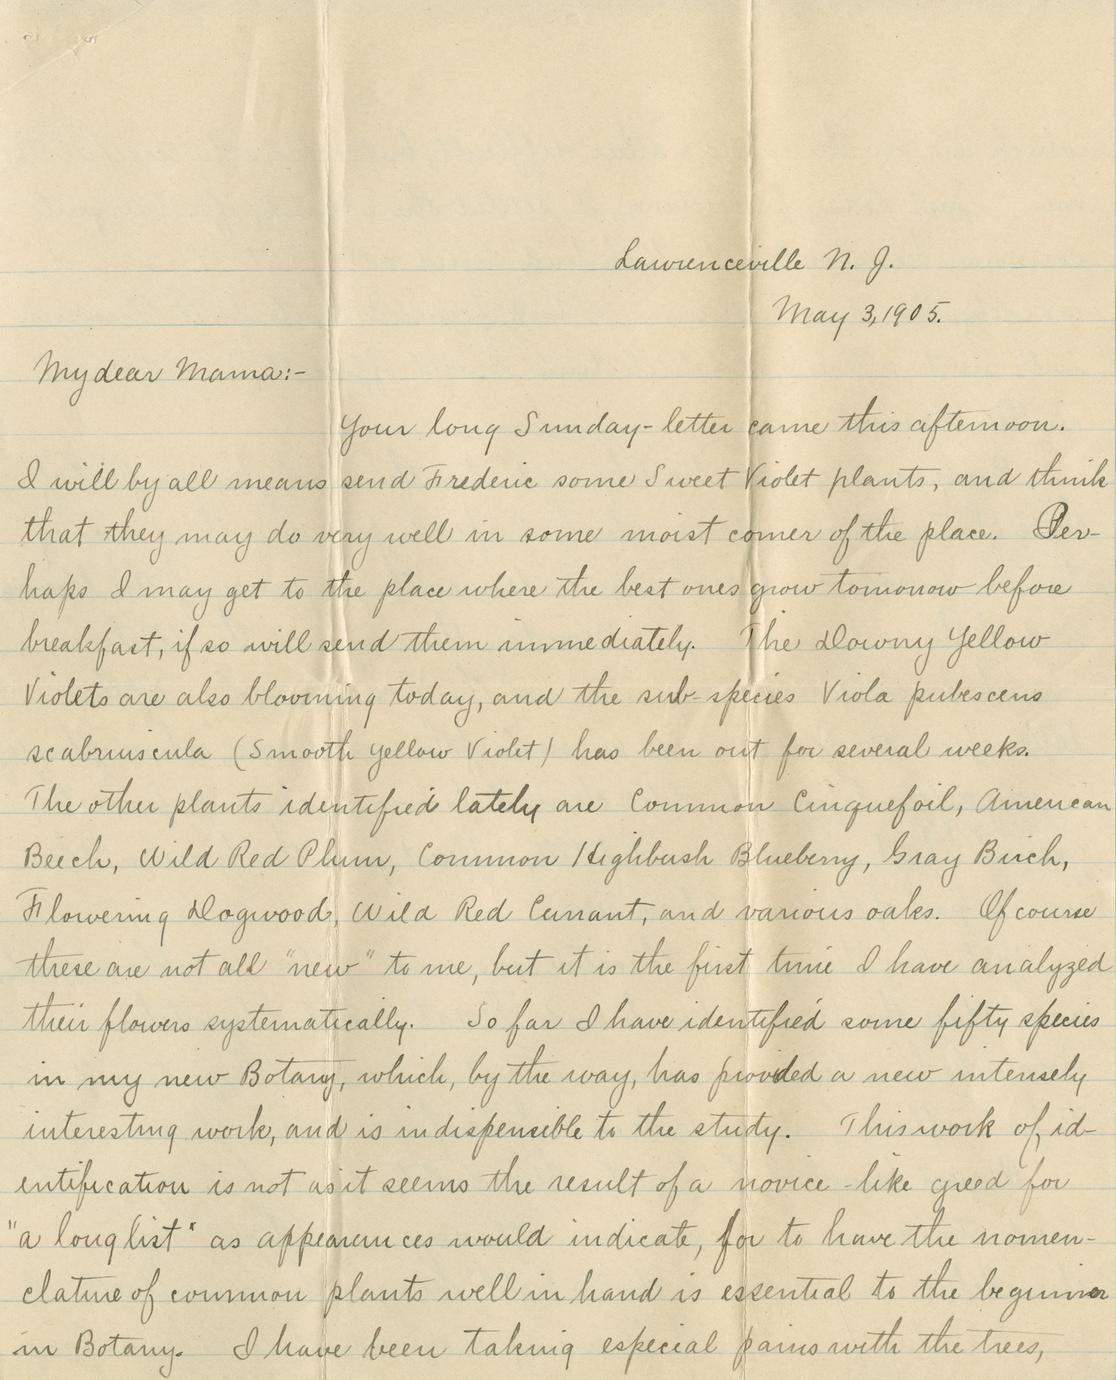 Lawrenceville N. J.
May 3, 1905.
My dear Mama:-
Your long Sunday-letter came this afternoon.
I will by all means send Frederic some Sweet Violet plants, and think
that they may do very well in some moist corner of the place. Per-
haps I may get to the place where the best ones grow tomorrow before
breakfast, if so will send them immediately. The Downy Yellow
Violets are also blooming today, and the sub-species Viola pubescens
scabriuscula (Smooth Yellow Violet) has been out for several weeks.
The other plants identified lately are Common Cinquefoil, American
Beech, Wild Red Plum, Common Highbush Blueberry, Gray Birch,
Flowering Dogwood, Wild Red Currant, and various oaks. Of course
these are not all "new" to me, but it is the first time I have analyzed
their flowers systematically. So far I have identified some fifty species
in my new Botany, which, by the way, has provided a new intensely
interesting work, and is indispensible to the study. This work of id-
entification is not as it seems the result of a novice-like greed for
"a long list" as appearances would indicate, for to have the nomen-
clature of common plants well in hand is essential to the beginner
in Botany. I have been taking especial pains with the trees,